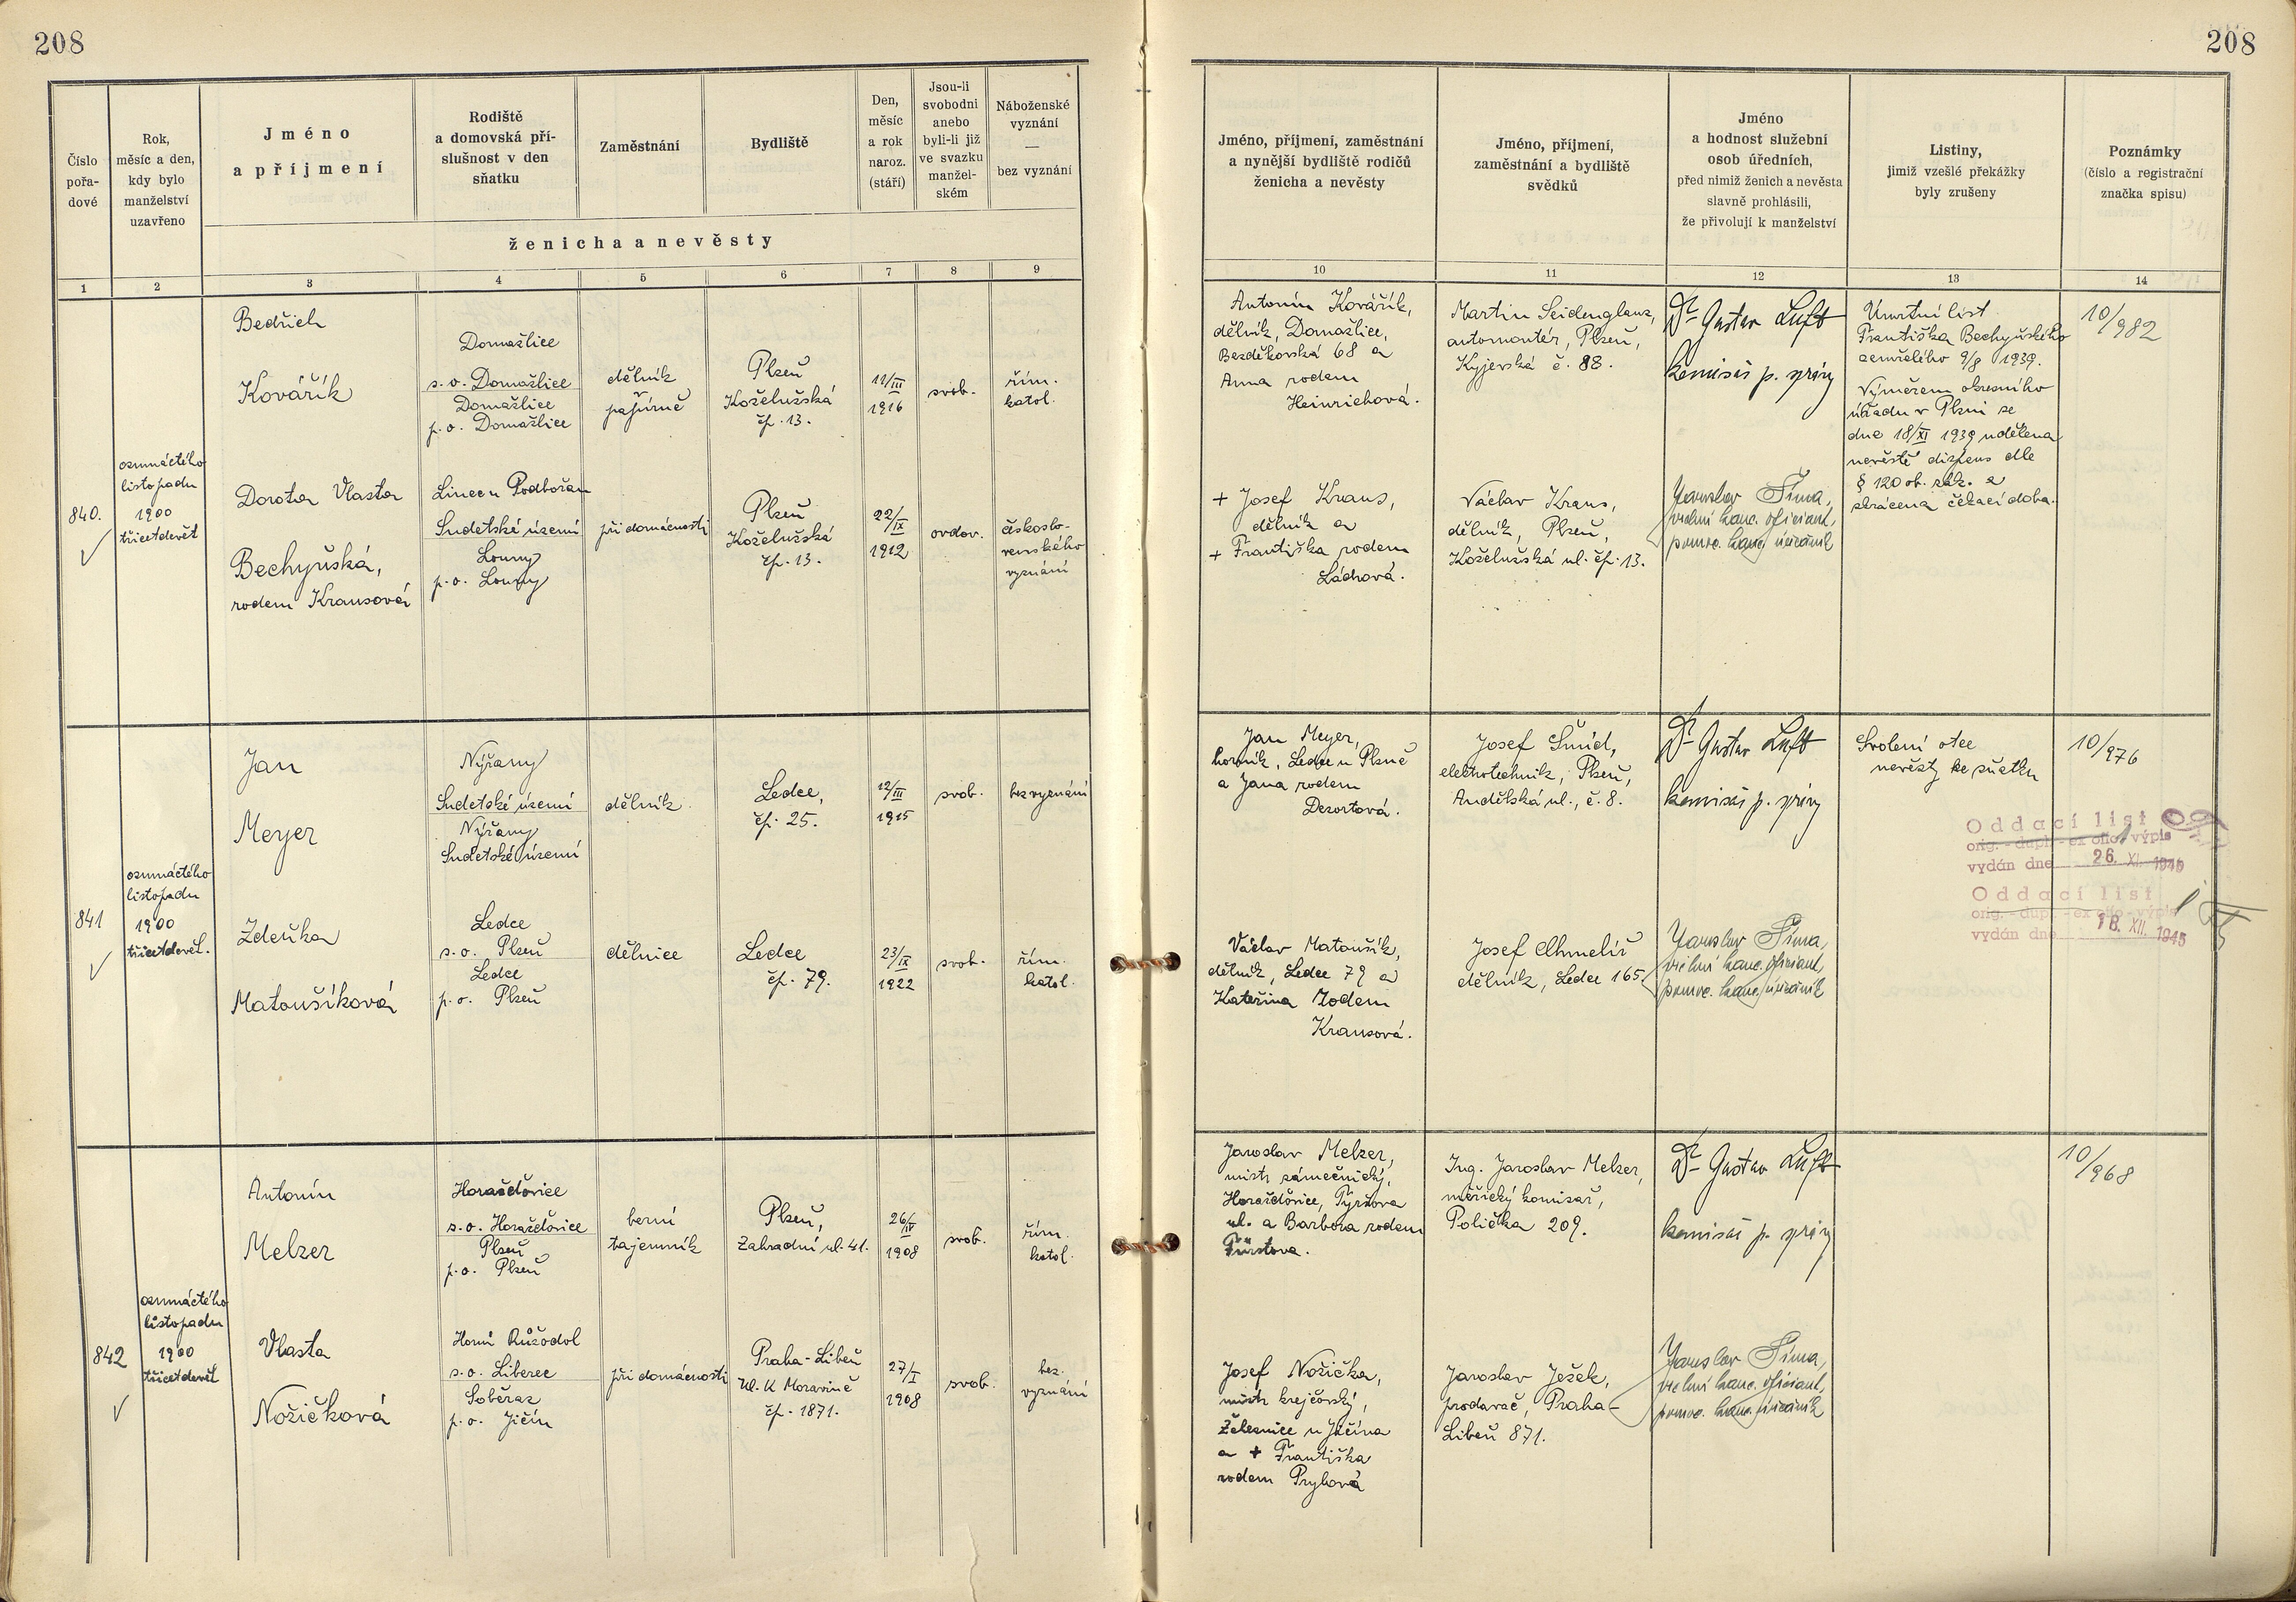 208
208
Číslo
pořa-
dové
Rok,
měsíc a den,
kdy bylo
manželství
uzavřeno
Jméno
a příjmení
Rodiště
a domovská pří-
slušnost v den
sňatku
Zaměstnání
Bydliště
Den,
měsíc
a rok
naroz.
(stáří)
Jsou-li
svobodni
anebo
byli-li již
ve svazku
manžel-
ském
Náboženské
vyznání
—
bez vyznání
ženicha a nevěsty
Jméno, příjmení, zaměstnání
a nynější bydliště rodičů
ženicha a nevěsty
Jméno, příjmení,
zaměstnání a bydliště
svědků
Jméno
a hodnost služební
osob úředních,
před nimiž ženich a nevěsta
slavně prohlásili,
že přivolují k manželství
Listiny,
jimiž vzešlé překážky
byly zrušeny
Poznámky
(číslo a registrační
značka spisu)
1 2 3 4 5 6 7 8 9 10 11 12 13 14
840.
osmnáctého
listopadu
1900
třicetdevět
Bedřich
Kovářík
Domažlice
s.o. Domažlice
Domažlice
p.o. Domažlice
dělník
v
papírně
Plzeň
Koželužská
čp. 13.
11/III
1916
svob.
řím.
katol.
Dorota Vlasta
Bechyňská,
rodem Krausová
Linec u Podbořan
Sudetské území
Louny
p.o. Louny
při domácnosti
Plzeň
Koželužská
čp. 13.
22/IX
1912
ovdov.
českoslo-
venského
vyznání
Antonín Kovářík,
dělník, Domažlice,
Bezděkovská 68 a
Anna rodem
Heinrichová.
+ Josef Kraus,
dělník a
+ Františka rodem
Láchová.
Martin Seidenglanz,
automontér, Plzeň,
Kyjevská č. 88.
Václav Kraus,
dělník, Plzeň,
Koželužská ul. čp. 13.
Dr Gustav Luft
komisař p. správy
Jaroslav Šíma,
vrchní kanc. oficiant,
pomoc. kanc. úředník
Úmrtní list
Františka Bechyňského
zemřelého 9/8 1939.
Výměrem okresního
úřadu v Plzni se
dne 18/XI 1939 udělena
nevěstě dispens dle
§ 120 ob. zák. a
zkrácena čekací doba.
10/982
841
osmnáctého
listopadu
1900
třicetdevět.
Jan
Meyer
Nýřany
Sudetské území
Nýřany
Sudetské území
dělník
Ledce,
čp. 25.
12/III
1915
svob.
bez vyznání
Zdeňka
Matoušíková
Ledce
s.o. Plzeň
Ledce
p.o. Plzeň
dělnice
Ledce
čp. 79.
23/IX
1922
svob.
řím.
katol.
Jan Meyer,
horník, Ledce u Plzně
a Jana rodem
Dezortová.
Václav Matoušík,
dělník, Ledce 79 a
Kateřina rodem
Krausová.
Josef Šmíd,
elektrotechnik, Plzeň,
Andělská ul., č. 8.
Josef Chmelíř
dělník, Ledce 165.
Dr Gustav Luft
komisař p. správy
Jaroslav Šíma,
vrchní kanc. oficiant,
pomoc. kanc. úředník
Svolení otce
nevěsty ke sňatku
10/976
Oddací list
orig. - dupl. - ex offo - výpis
vydán dne 26. XI. 1940
Oddací list
orig. - dupl. - ex offo - výpis
vydán dne 18. XII. 1945
842
osmnáctého
listopadu
1900
třicetdevět
Antonín
Melzer
Horažďovice
s.o. Horažďovice
Plzeň
p.o. Plzeň
berní
tajemník
Plzeň,
Zahradní ul. 41.
26/IV
1908
svob.
řím.
katol.
Vlasta
Nožičková
Horní Růžodol
s.o. Liberec
Soběraz
p.o. Jičín
při domácnosti
Praha-Libeň
Ul. K Moravině
čp. 1871.
27/I
1908
svob.
bez
vyznání
Jaroslav Melzer,
mistr zámečnický,
Horažďovice, Tyršova
ul. a Barbora rodem
Fürstova.
Josef Nožička,
mistr krejčovský,
Železnice u Jičína
a + Františka
rodem Prylová
Ing. Jaroslav Melzer,
měřický komisař,
Polička 209.
Jaroslav Ježek,
prodavač, Praha-
Libeň 871.
Dr Gustav Luft
komisař p. správy
Jaroslav Šíma,
vrchní kanc. oficiant,
pomoc. kanc. úředník
10/968